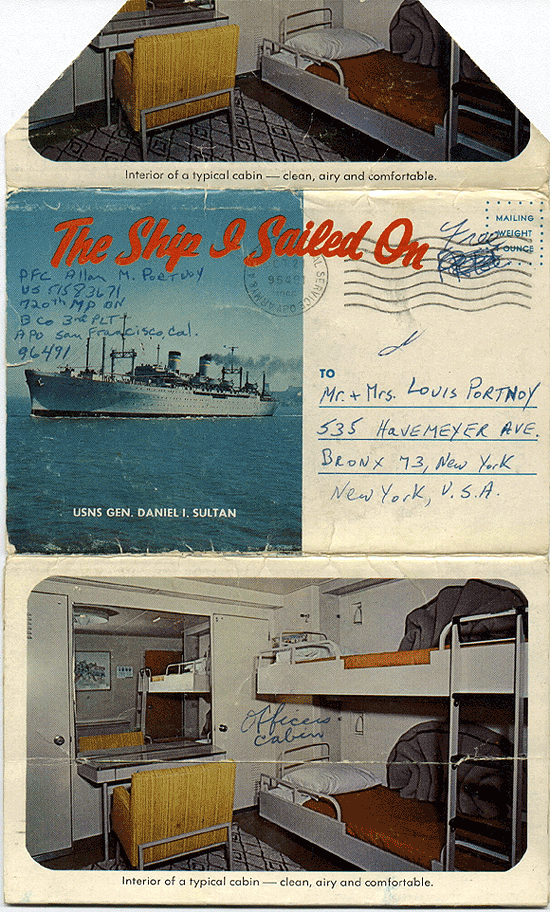 Interior of a typical cabin — clean, airy and comfortable.
The Ship I Sailed On
MAILING
WEIGHT
OUNCE
Free
PFC Allan M. Portnoy
US 51583671
720th MP BN
B Co 3rd PLT
APO San Francisco, Cal.
96491
TO
Mr. + Mrs. Louis Portnoy
535 Havemeyer Ave.
Bronx 73, New York
New York, U.S.A.
USNS GEN. DANIEL I. SULTAN
Officers
cabin
Interior of a typical cabin — clean, airy and comfortable.